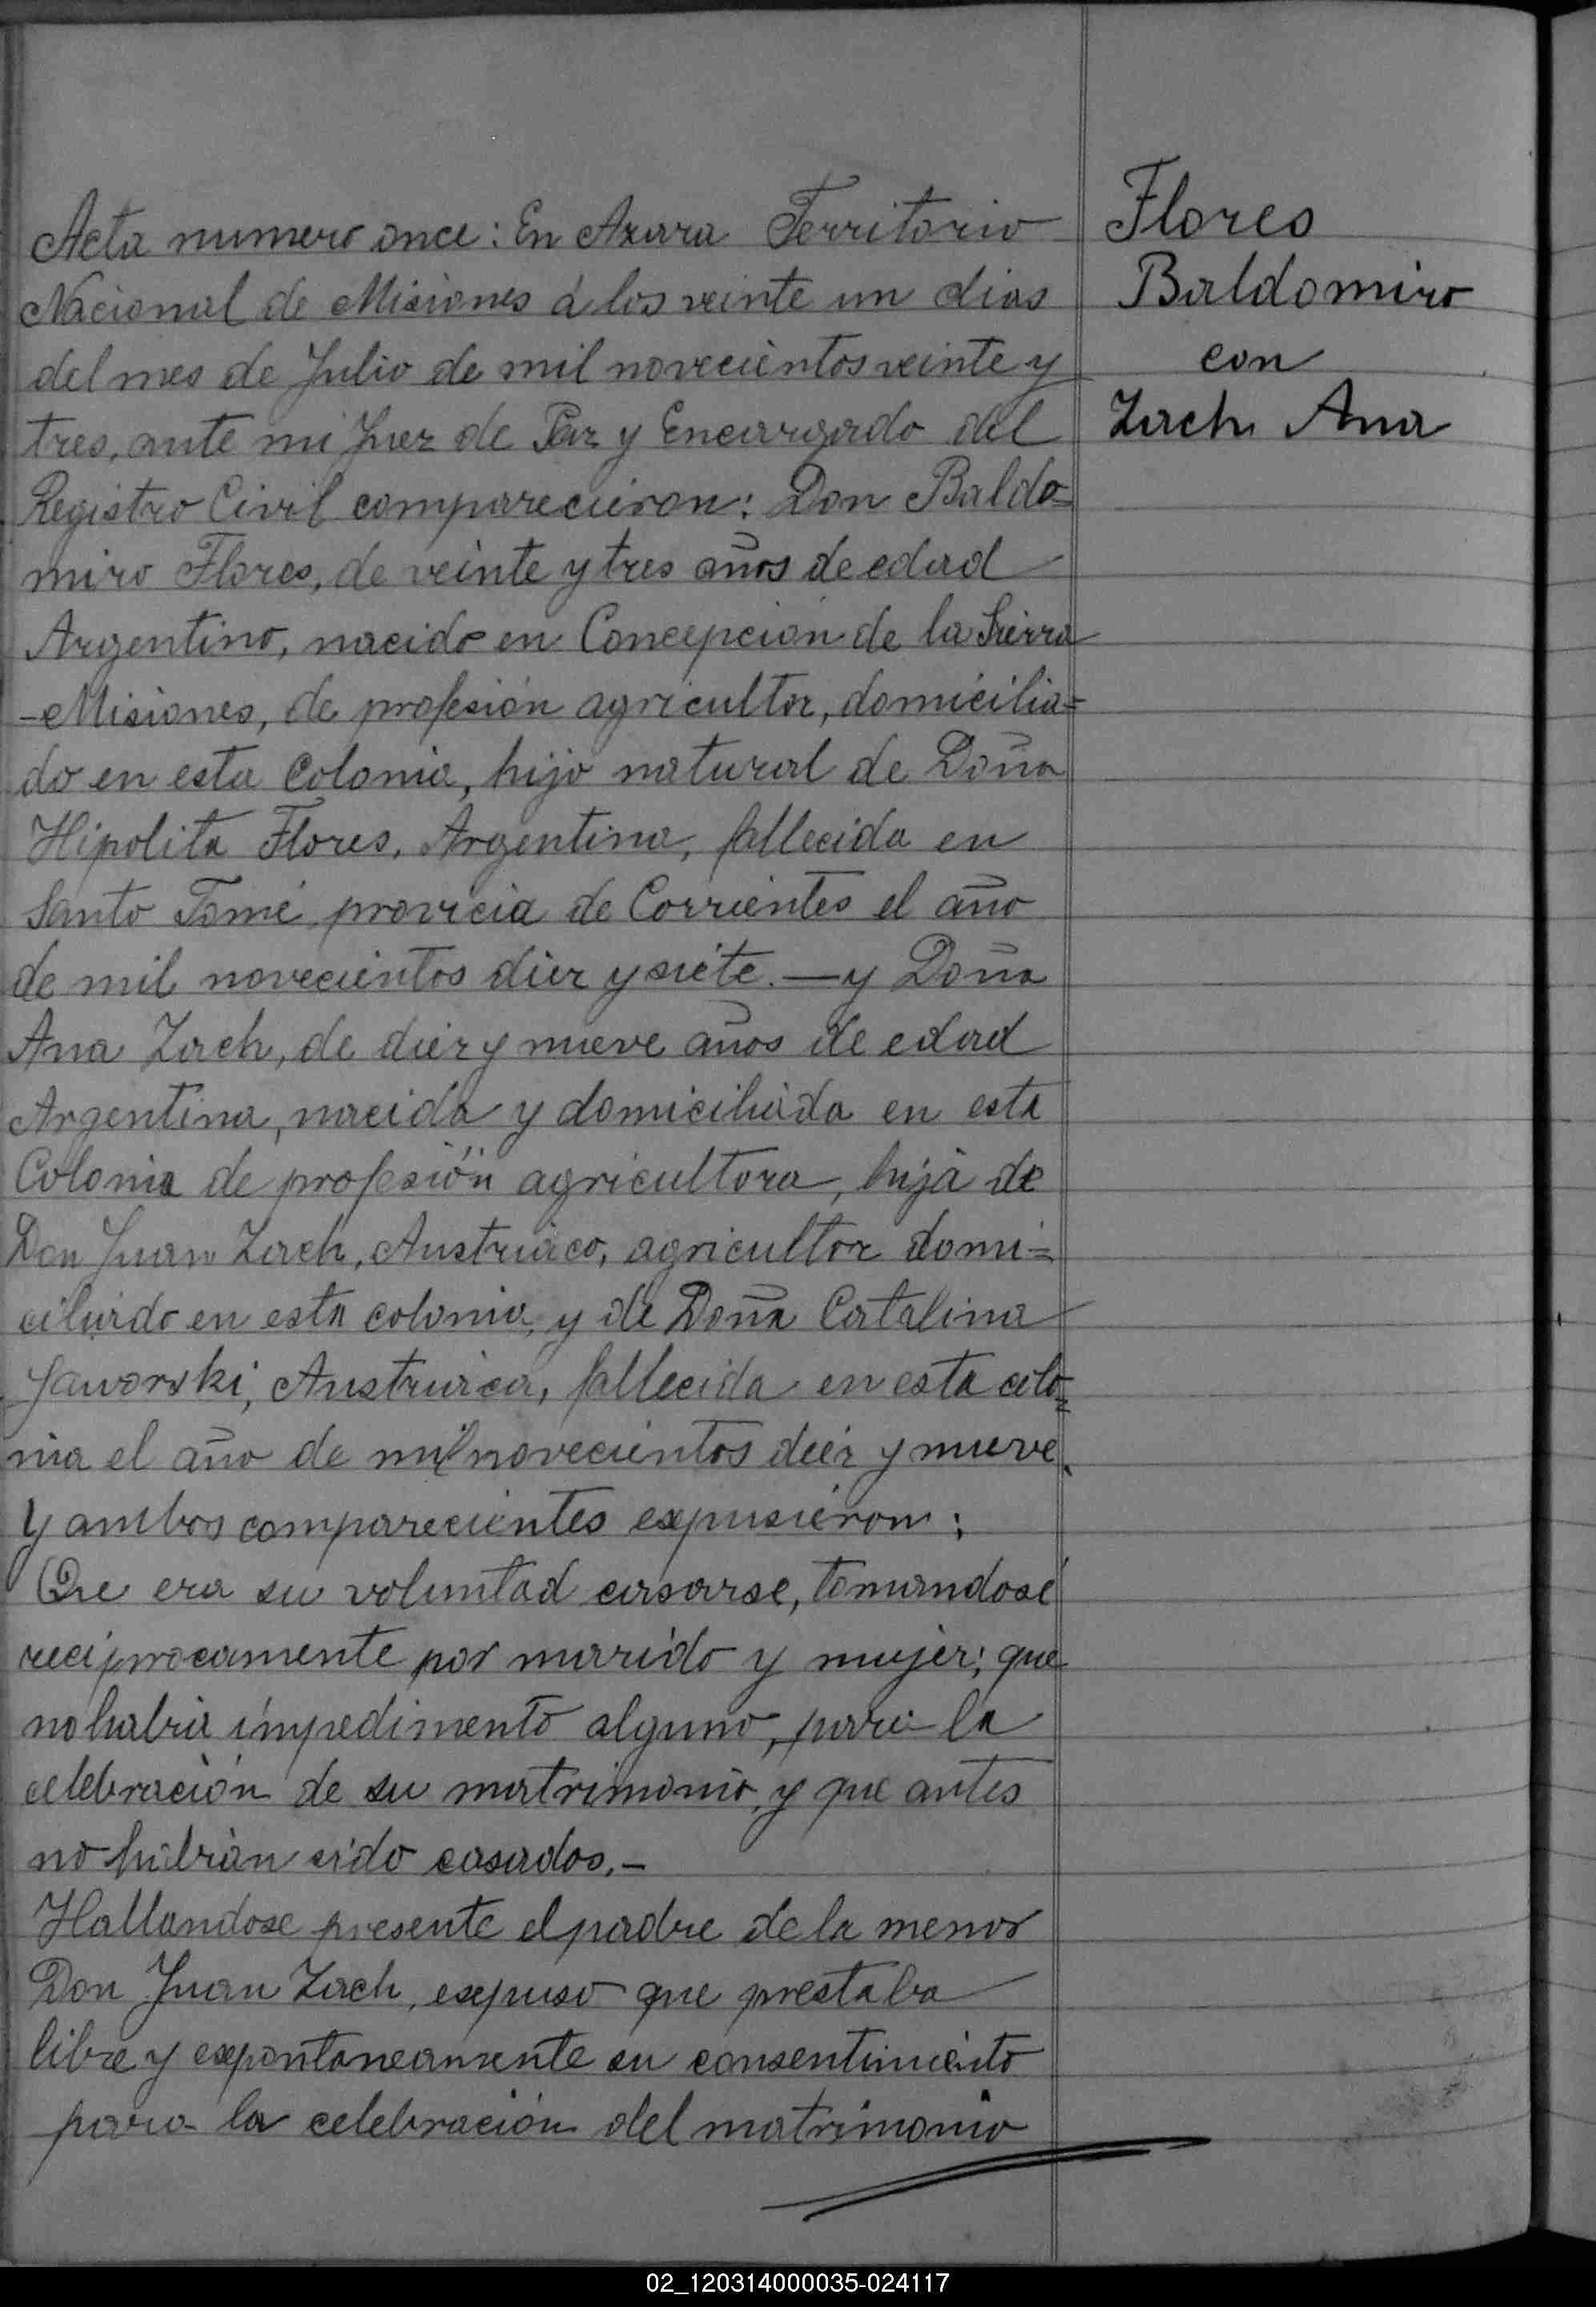 Acta numero once: En Azara Territorio
Nacional de Misiones á los veinte un dias
del mes de Julio de mil novecientos veinte y
tres, ante mi Juez de Paz y Encargado del
Registro Civil comparecieron: Don Baldo=
miro Flores, de veinte y tres años de edad
Argentino, nacido en Concepcion de la Sierra
-Misiones, de profesión agricultor, domicilia=
do en esta Colonia, hijo natural de Doña
Hipolita Flores, Argentina, fallecida en
Santo Tomé provicia de Corrientes el año
de mil novecientos diez y siete. — y Doña
Ana Zach, de diez y nueve años de edad
Argentina, nacida y domiciliada en esta
Colonia de profesión agricultora, hija de
Don Juan Zach, Austriaco, agricultor domi=
ciliado en esta colonia, y de Doña Catalina
Jaworski, Austriaca, fallecida en esta colo=
nia el año de mil novecientos diez y nueve.
Y ambos comparecientes expusieron:
Que era su voluntad casarse, tomandose
reciprocamente por marido y mujer; que
no habia impedimento alguno, para la
celebración de su matrimonio, y que antes
no habian sido casados.-
Hallandose presente el padre de la menor
Don Juan Zach, expuso que prestaba
libre y expontoneamente su consentimiento
para la celebración del matrimonio
Flores
Baldomiro
con
Zach Ana
02_120314000035-024117